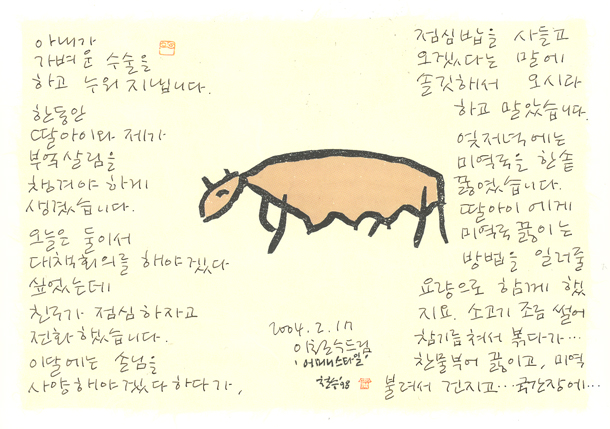 아내가
가벼운 수술을
하고 누워 지냅니다.
한동안
딸아이와 제가
부엌살림을
챙겨야 하게
생겼습니다.
오늘은 둘이서
대책회의를 해야겠다
싶었는데
친구가 점심 하자고
전화했습니다.
이달에는 손님을
사양해야겠다 하다가,
점심밥을 사들고
오겠다는 말에
솔깃해서 오시라
하고 말았습니다.
엊저녁에는
미역국을 한솥
끓였습니다.
딸아이에게
미역국 끓이는
방법을 일러줄
요량으로 함께 했
지요. 소고기 조금 썰어
참기름 쳐서 볶다가…
찬물 부어 끓이고, 미역
불려서 건지고…국간장에…
2004.2.17
이철수드림
'어머니스타일'
철수'98